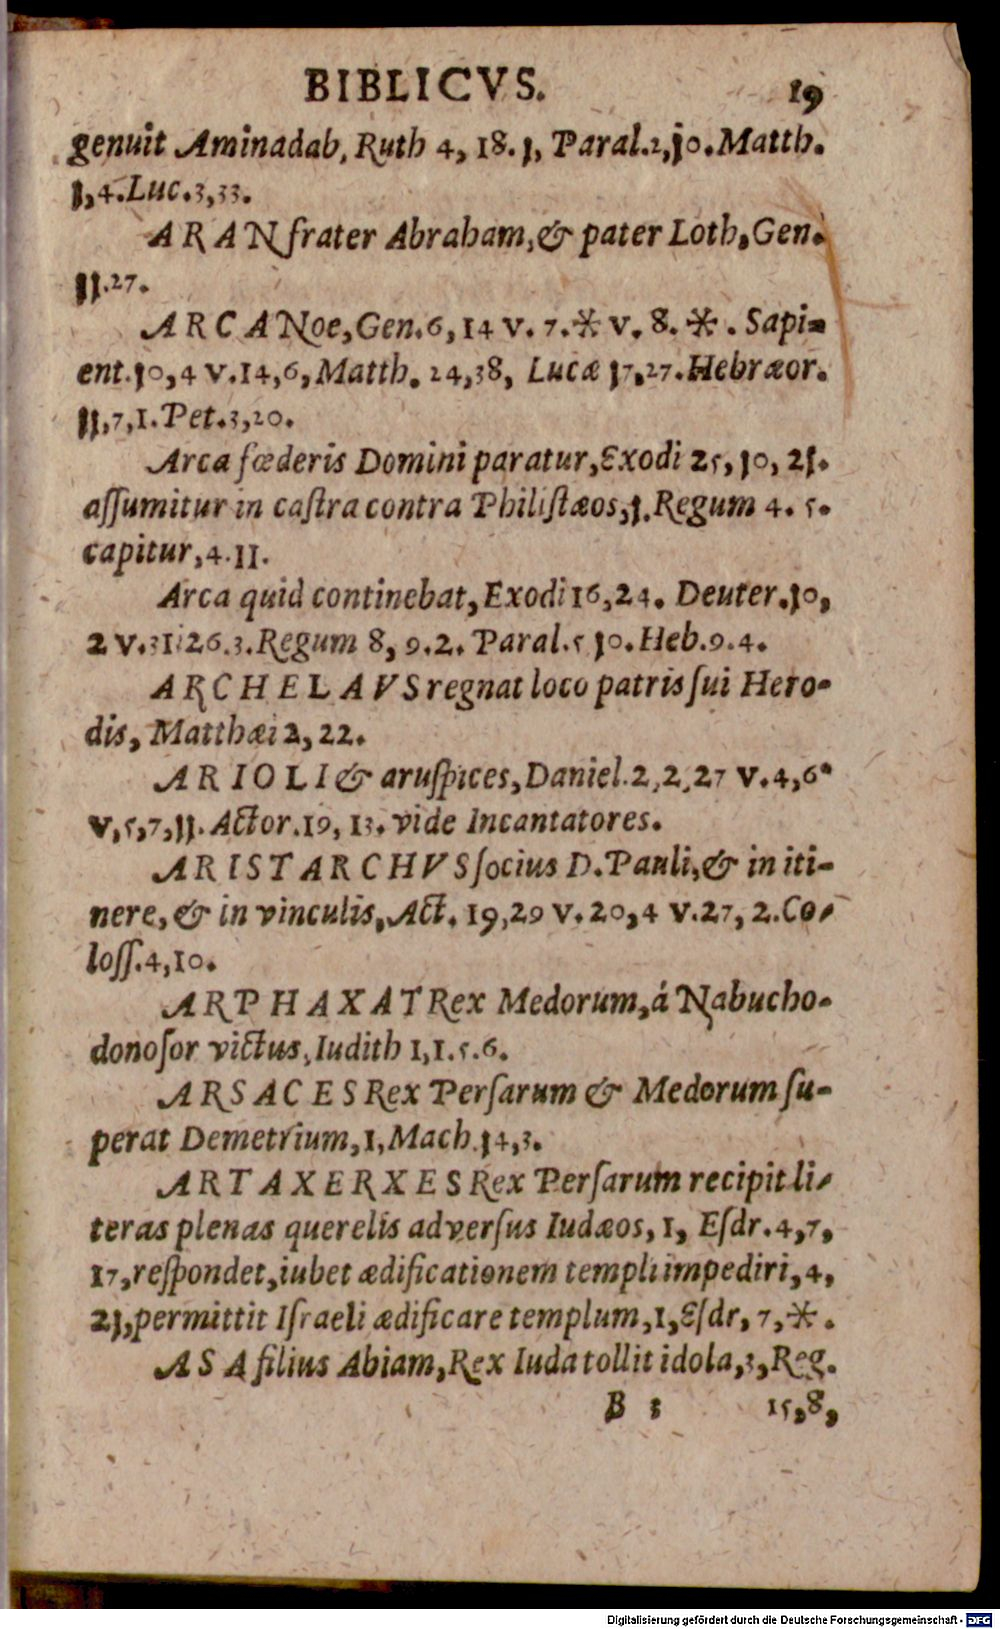 BIBLICVS. 19
genuit Aminadab, Ruth 4, 18. 1, Paral. 2, 10. Matth.
1, 4. Luc. 3, 33.
ARAN frater Abraham, & pater Loth, Gen.
11. 27.
ARCA Noe, Gen. 6, 14 v. 7. * v. 8. * . Sapi-
ent. 10, 4 v. 14, 6, Matth. 24, 38, Lucæ 17, 27. Hebræor.
11, 7, 1. Pet. 3, 20.
Arca fœderis Domini paratur, Exodi 25, 10, 21.
aſſumitur in caſtra contra Philiſtæos, 1. Regum 4. 5.
capitur, 4. 11.
Arca quid continebat, Exodi 16, 24. Deuter. 10,
2 v. 31 26. 3. Regum 8, 9. 2. Paral. 5 10. Heb. 9. 4.
ARCHELAVS regnat loco patris ſui Hero-
dis, Matthæi 2, 22.
ARIOLI & aruſpices, Daniel. 2, 2, 27 v. 4, 6.
v, 5, 7, 11. Actor. 19, 13. vide Incantatores.
ARISTARCHVS ſocius D. Pauli, & in iti-
nere, & in vinculis, Act. 19, 29 v. 20, 4 v. 27, 2. Co-
loſſ. 4, 10.
ARPHAXAT Rex Medorum, á Nabucho-
donoſor victus, Iudith 1, 1. 5. 6.
ARSACES Rex Perſarum & Medorum ſu-
perat Demetrium, 1, Mach. 14, 3.
ARTAXERXES Rex Perſarum recipit li-
teras plenas querelis adverſus Iudæos, 1, Eſdr. 4, 7,
17, reſpondet, iubet ædificationem templi impediri, 4,
21, permittit Iſraeli ædificare templum, 1, Eſdr, 7, * .
ASA filius Abiam, Rex Iuda tollit idola, 3, Reg.
B 3 15, 8,
Digitalisierung gefördert durch die Deutsche Forschungsgemeinschaft - DFG